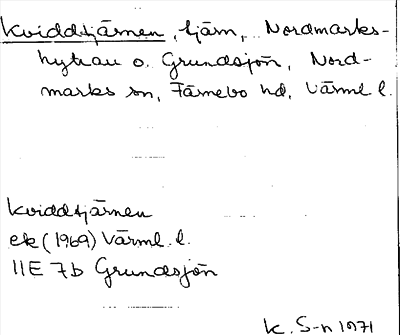 Kviddtjärnen, tjärn, Nordmarks-
hyttan o. Grundsjön, Nord-
marks sn, Färnebo hd, Värml l.
Kviddtjärnen
ek (1969) Värml. l.
11E 7b Grundsjön
K. S-n 1971